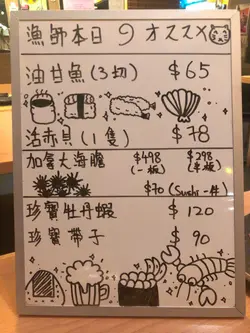 漁師本日のオススメ
油甘魚(3切) $65
活赤貝(1隻) $78
加拿大海膽 $498 (一板) $298 (半板)
$70 (Sushi 一件)
珍寶牡丹蝦 $120
珍寶帶子 $90